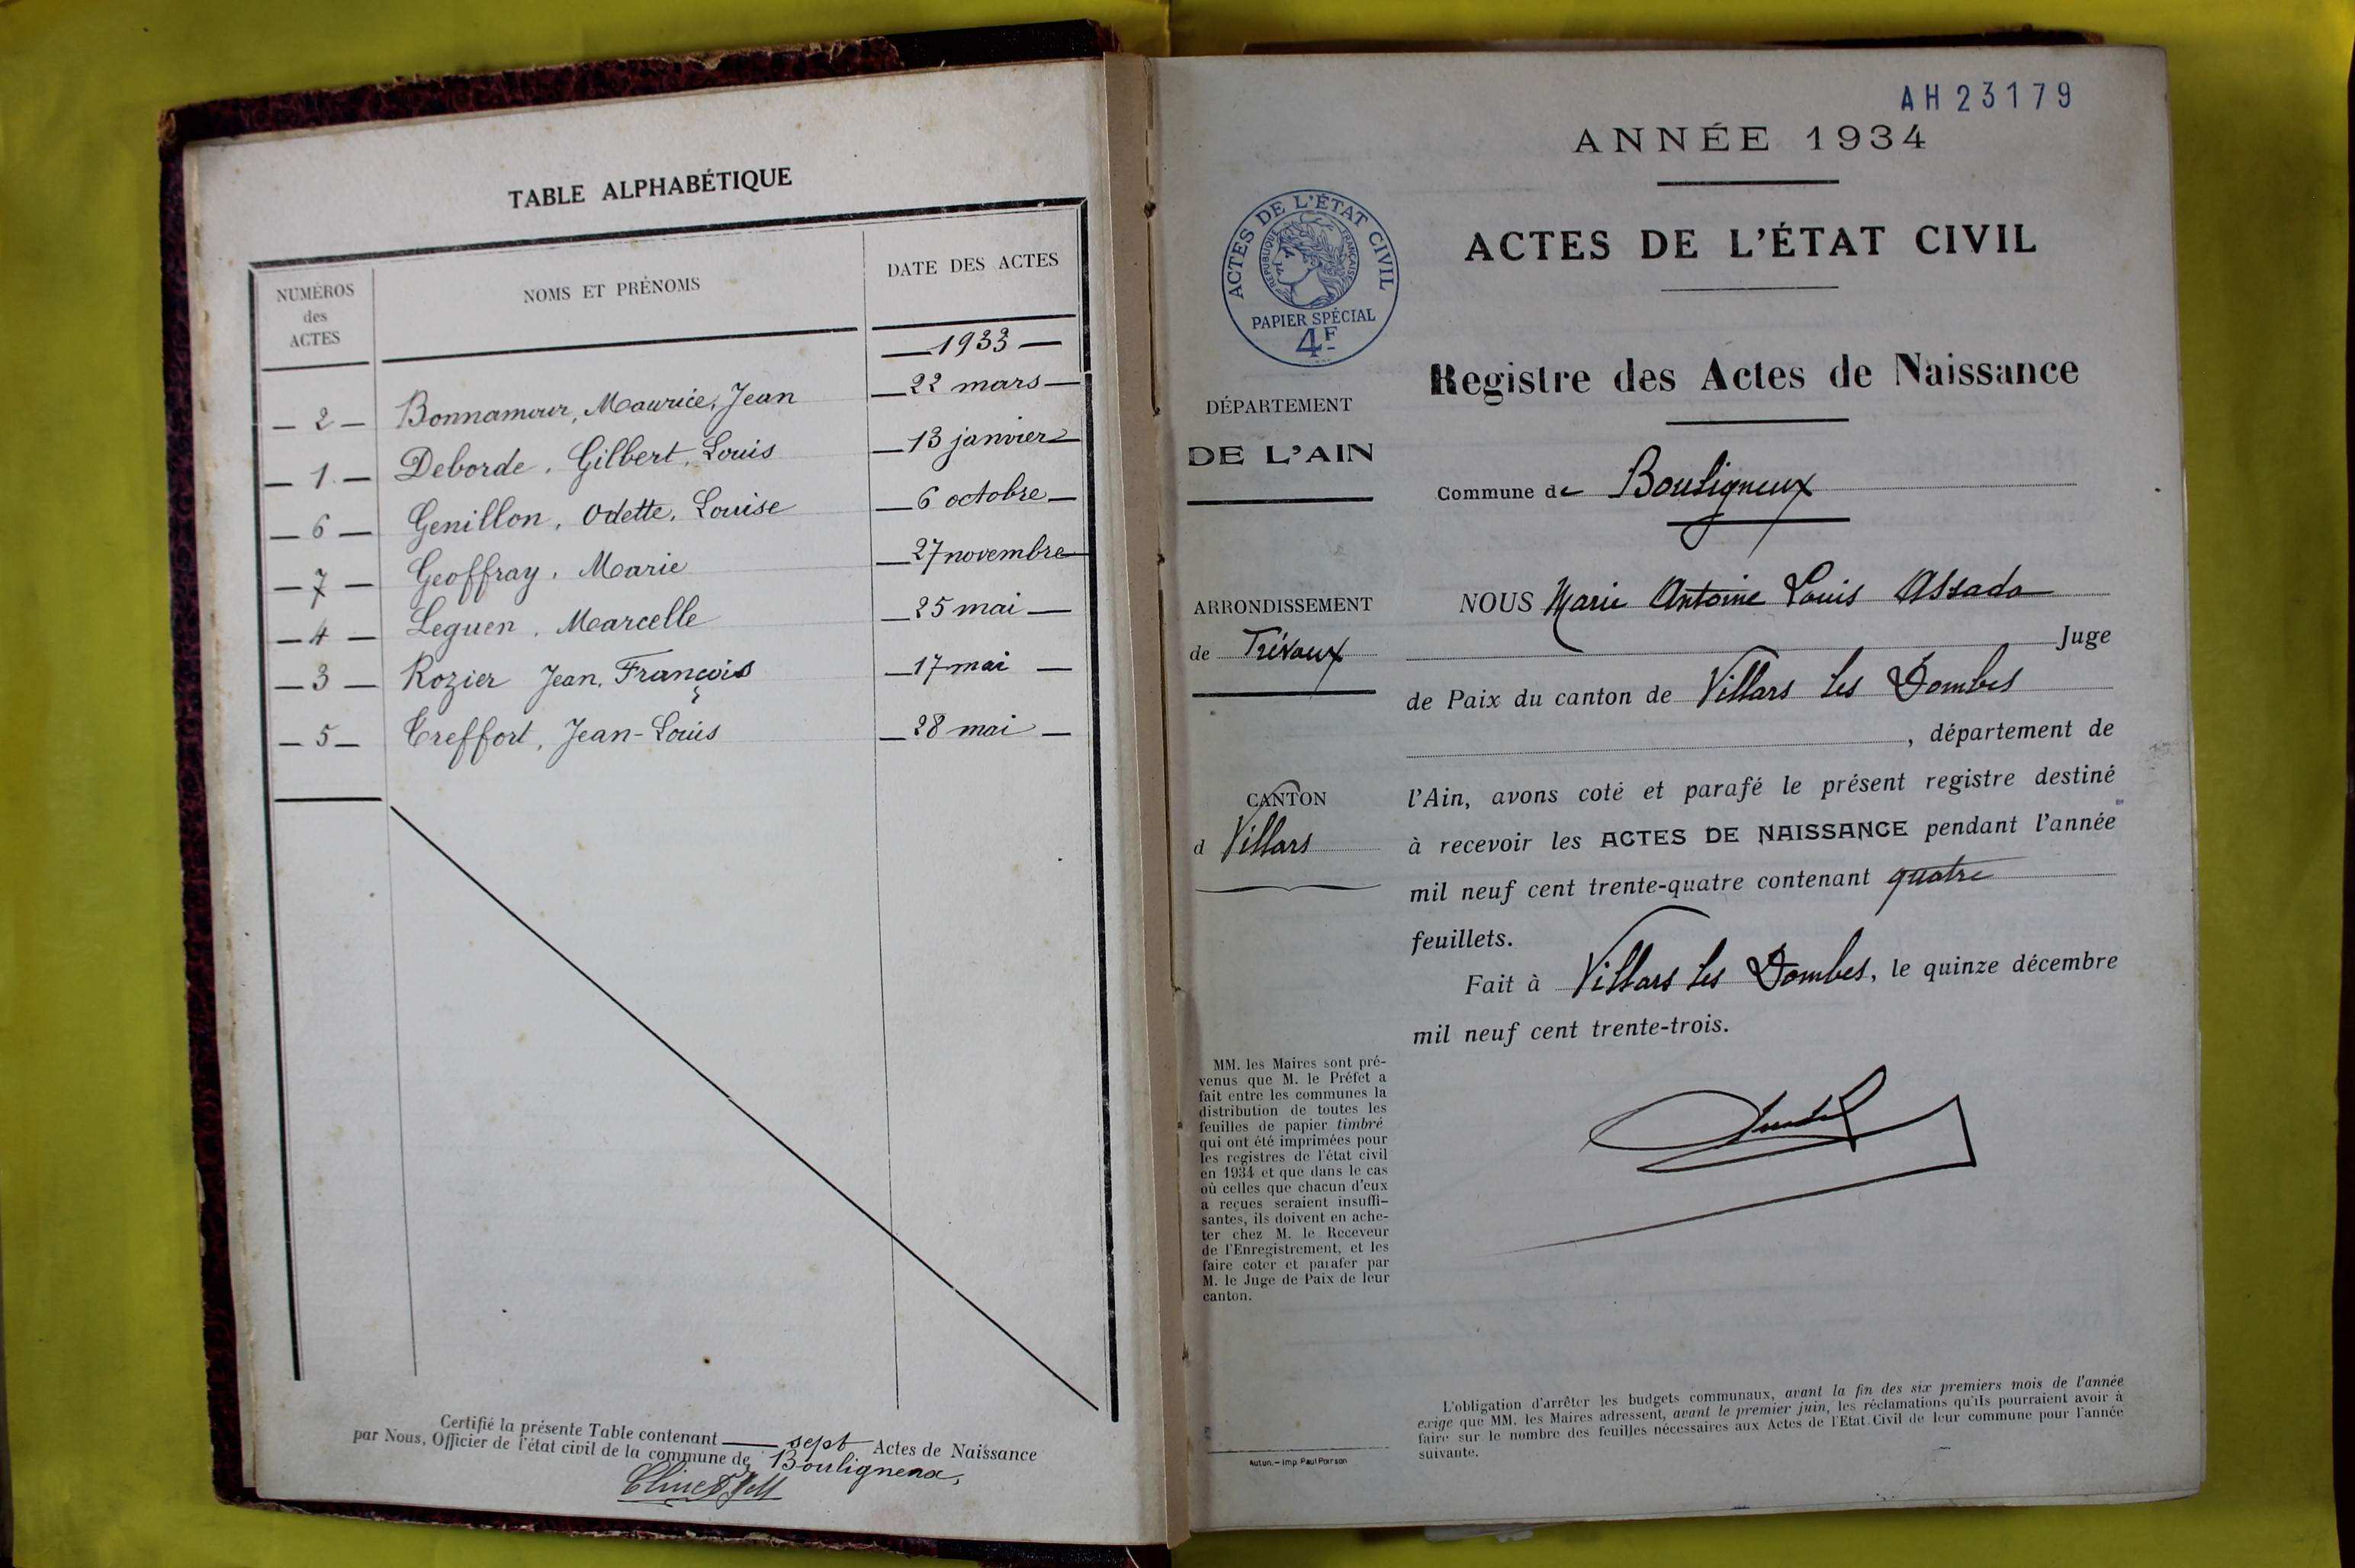 TABLE ALPHABÉTIQUE
NUMÉROS des ACTES
NOMS ET PRÉNOMS
DATE DES ACTES
— 1933 —
— 2 — Bonnamour, Maurice, Jean — 22 mars —
— 1 — Deborde, Gilbert, Louis — 13 janvier —
— 6 — Genillon, Odette, Louise — 6 octobre —
— 7 — Geoffray, Marie — 27 novembre —
— 4 — Leguen, Marcelle — 25 mai —
— 3 — Rozier Jean, François — 17 mai —
— 5 — Treffort, Jean-Louis — 28 mai —
Certifié la présente Table contenant — sept Actes de Naissance
par Nous, Officier de l'état civil de la commune de Bouligneux,
AH23179
ANNÉE 1934
ACTES DE L'ÉTAT CIVIL
RÉPUBLIQUE FRANÇAISE
PAPIER SPÉCIAL
4F
ACTES DE L'ÉTAT CIVIL
Registre des Actes de Naissance
DÉPARTEMENT
DE L'AIN
Commune de Bouligneux
ARRONDISSEMENT
de Trévoux
CANTON
d Villars
NOUS Marie Antoine Louis
Juge
de Paix du canton de Villars les Dombes
, département de
l'Ain, avons coté et parafé le présent registre destiné
à recevoir les ACTES DE NAISSANCE pendant l'année
mil neuf cent trente-quatre contenant quatre
feuillets.
Fait à Villars les Dombes, le quinze décembre
mil neuf cent trente-trois.
MM. les Maires sont pré-
venus que M. le Préfet a
fait entre les communes la
distribution de toutes les
feuilles de papier timbré
qui ont été imprimées pour
les registres de l'état civil
en 1934 et que dans le cas
où celles que chacun d'eux
a reçues seraient insuffi-
santes, ils doivent en ache-
ter chez M. le Receveur
de l'Enregistrement, et les
faire coter et parafer par
M. le Juge de Paix de leur
canton.
Autun. — Imp. Paul Poirson
L'obligation d'arrêter les budgets communaux, avant la fin des six premiers mois de l'année
exige que MM. les Maires adressent, avant le premier juin, les réclamations qu'ils pourraient avoir à
faire sur le nombre des feuilles nécessaires aux Actes de l'Etat Civil de leur commune pour l'année
suivante.